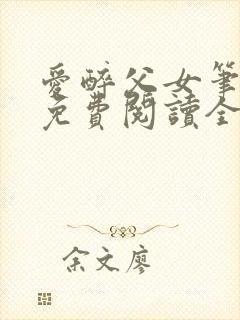 愛醉父女筆
免費閱讀全
余文廖